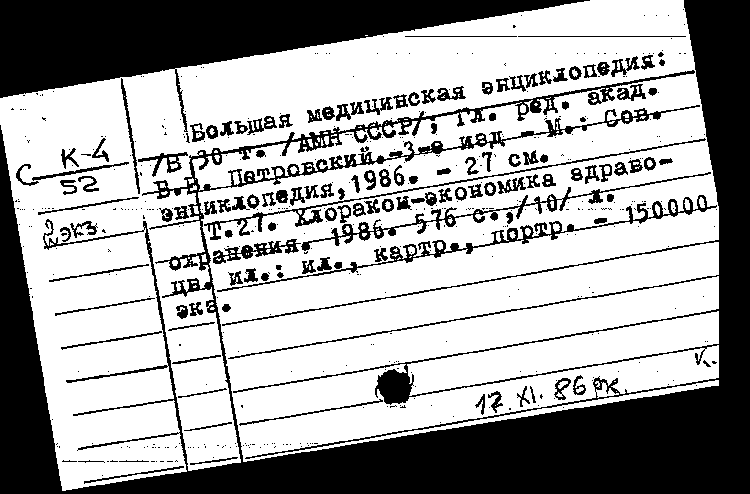 Большая медицинская энциклопедия:
/В 30 т. /АМН СССР/; Гл. ред. акад.
Б.В. Петровский.-3-е изд - М.: Сов.
энциклопедия,1986. - 27 см.
Т.27. Хлоракон-экономика здраво-
охранения. 1986. 576 с.,/10/ л.
цв. ил.: ил., картр., портр. - 150000
экз.
С К-4
52
2 экз.
12.XI.86